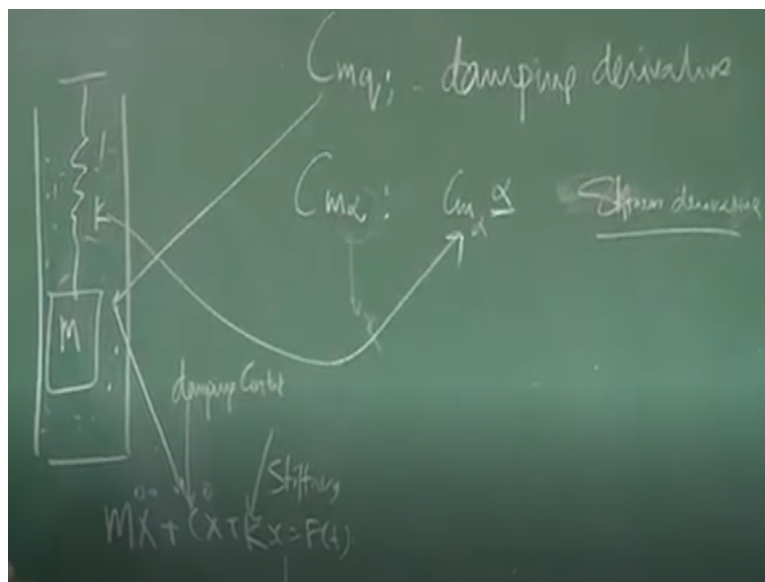 Cmq; - damping derivative
Cmα : Cmα α Stiffness derivative
K
M
damping Coeff
Stiffness
MẌ + CẊ + KX = F(t)